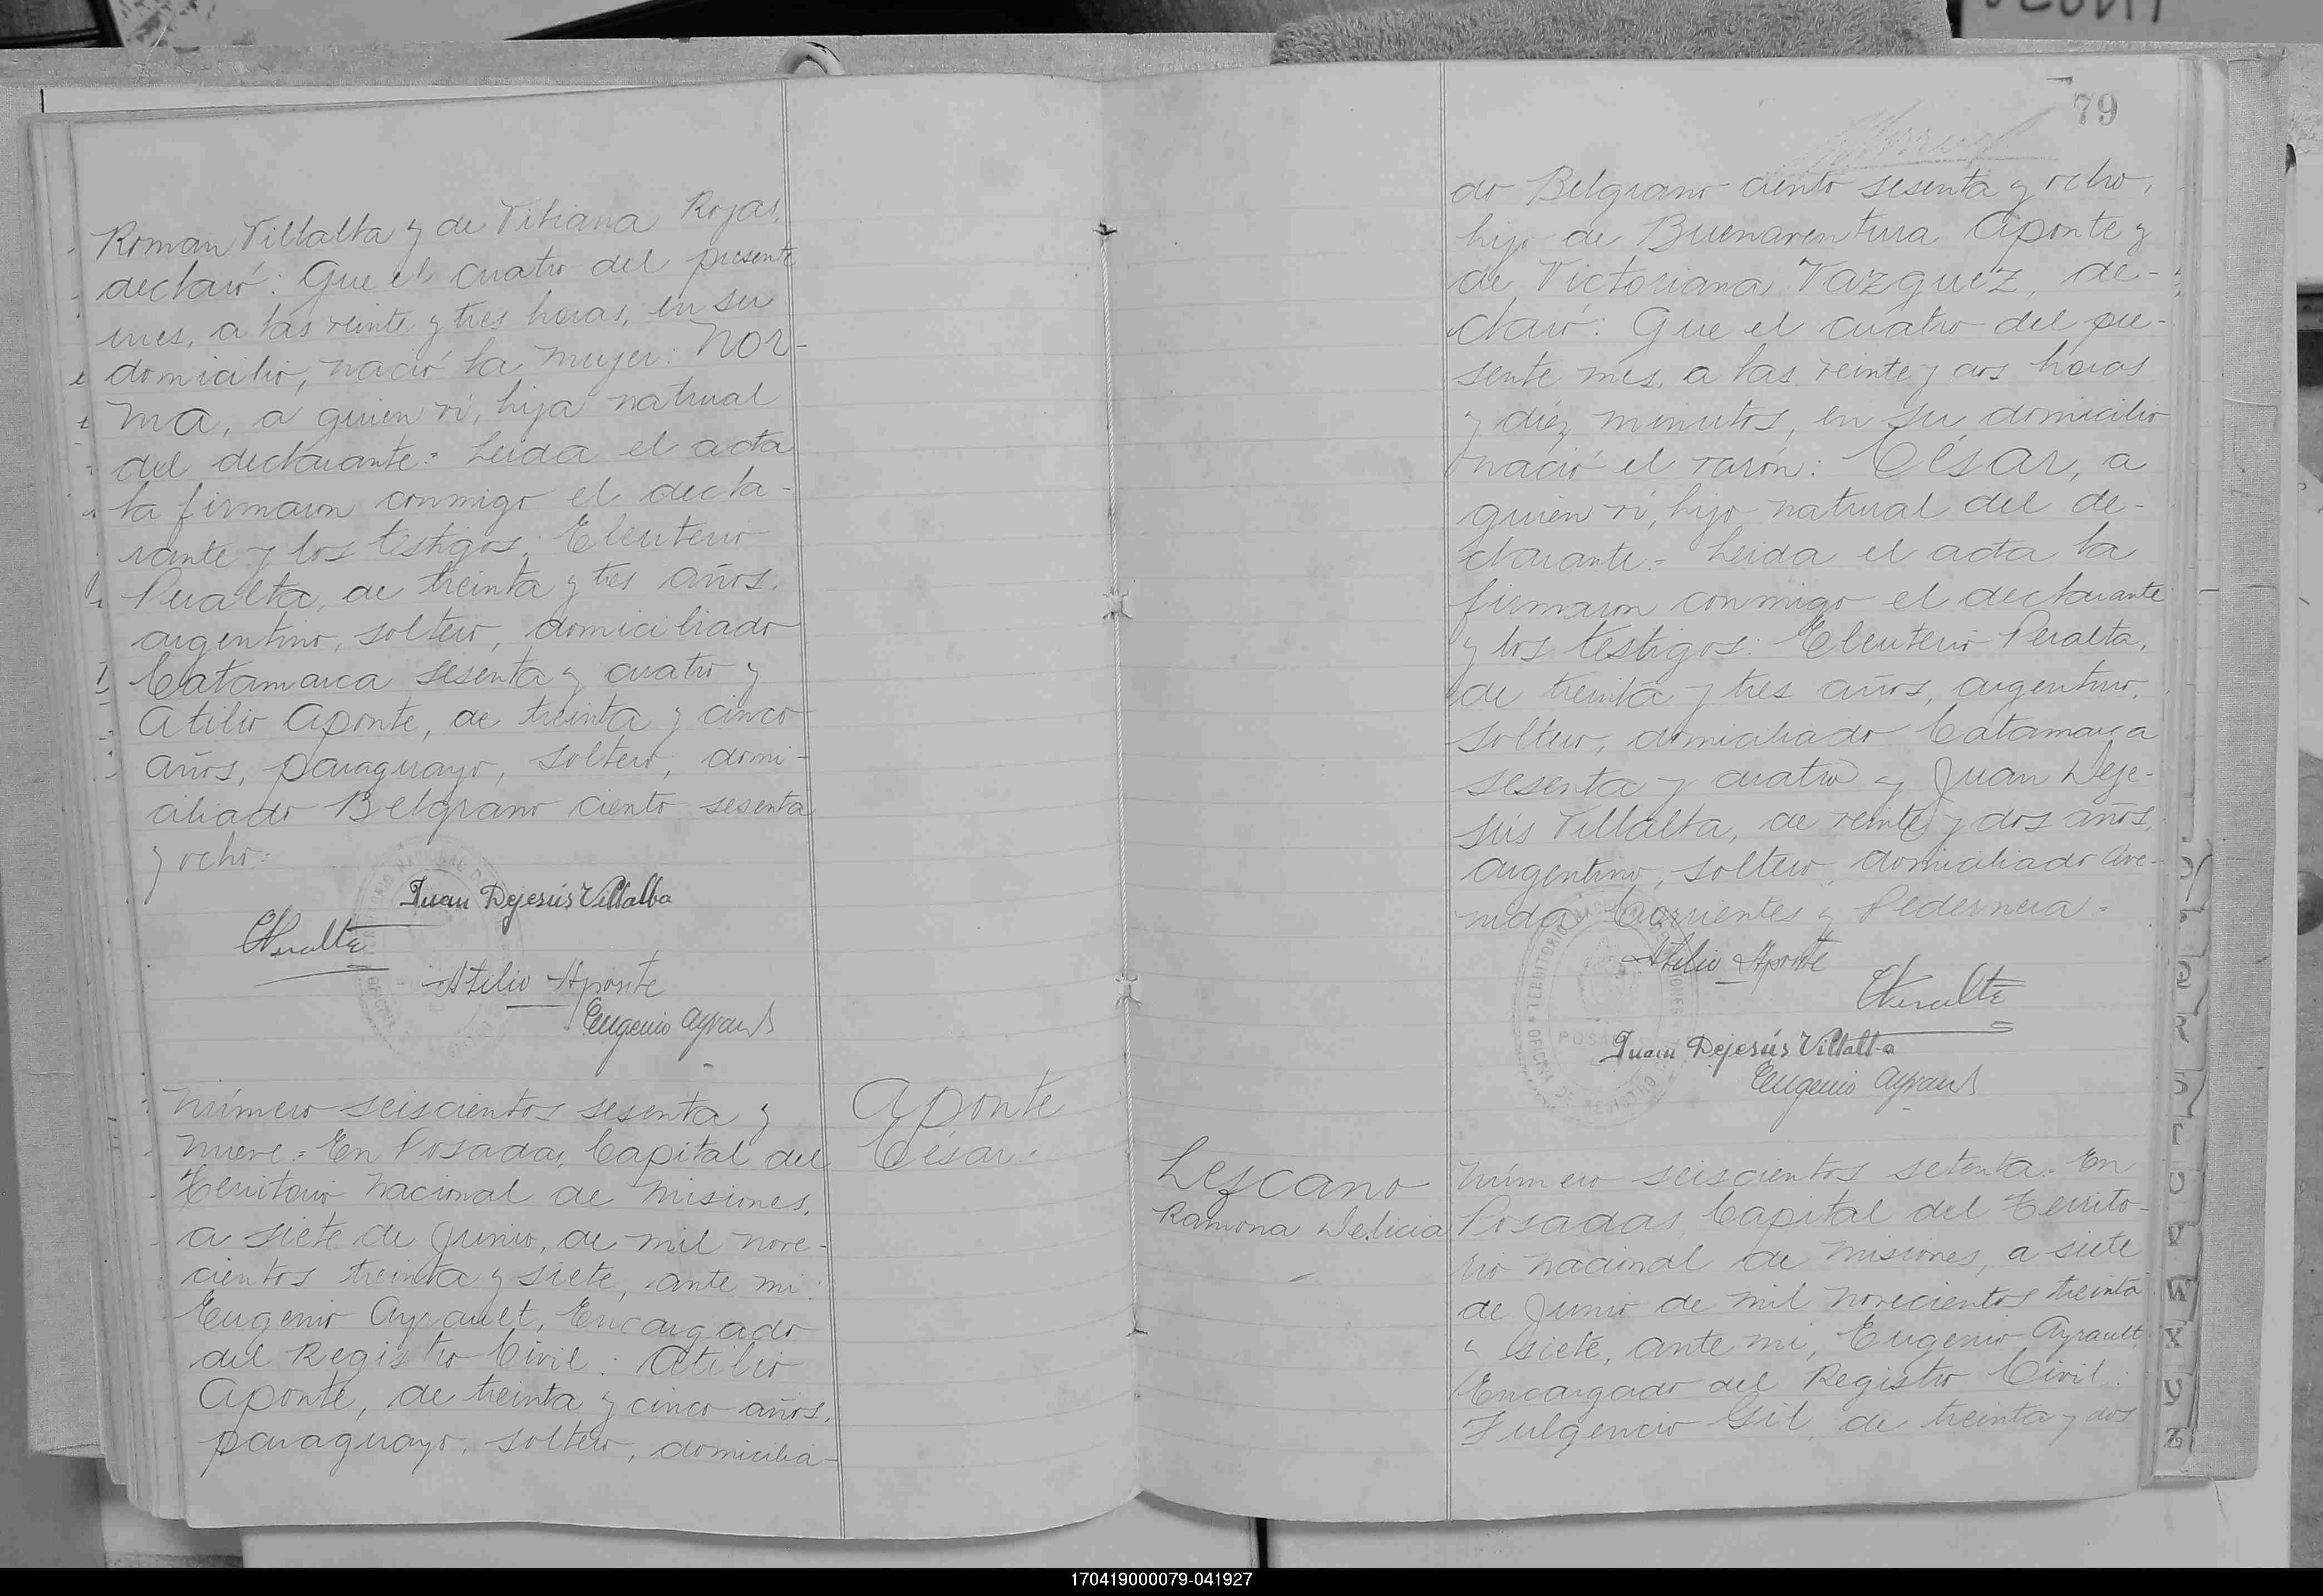 Roman Villalba y de Viviana Rojas,
declaró: Que el cuatro del presente
mes, a las veinte y tres horas, en su
domicilio, nació la mujer: Nor-
ma, a quien vi, hija natural
del declarante= Leida el acta
la firmaron conmigo el decla-
rante y los testigos: Eleuterio
Peralta, de treinta y tres años,
argentino, soltero, domiciliado
Catamarca sesenta y cuatro y
Atilio Aponte, de treinta y cinco
años, paraguayo, soltero, domi-
ciliado Belgrano ciento sesenta
y ocho=
Juan Dejesús Villalba
EPeralta
Atilio Aponte
Eugenio Ayrault
Aponte
César=
Número seiscientos sesenta y
nueve= En Posadas, Capital del
Territorio Nacional de Misiones,
a siete de Junio, de mil nove-
cientos treinta y siete, ante mi:
Eugenio Ayrault, Encargado
del Registro Civil: Atilio
Aponte, de treinta y cinco años,
paraguayo, soltero, domicilia-
79
do Belgrano ciento sesenta y ocho,
hijo de Buenaventura Aponte y
de Victoriana Vazquez, de-
claró: Que el cuatro del pre-
sente mes, a las veinte y dos horas
y diez minutos, en su domicilio
nació el varón: César, a
quien vi, hijo natural del de-
clarante= Leida el acta la
firmaron conmigo el declarante
y los testigos: Eleuterio Peralta,
de treinta y tres años, argentino,
soltero, domiciliado Catamarca
sesenta y cuatro y Juan Deje-
sús Villalba, de veinte y dos años,
argentino, soltero, domiciliado Ave-
nida Corrientes y Pedernera=
Atilio Aponte
EPeralta
Juan Dejesús Villalba
Eugenio Ayrault
TERRITORIO NACIONAL DE MISIONES
POSADAS
OFICINA DE REGISTRO
Lezcano
Ramona Delicia
Número seiscientos setenta= En
Posadas, Capital del Territo-
rio Nacional de Misiones, a siete
de Junio de mil novecientos treinta
y siete, ante mi, Eugenio Ayrault,
Encargado del Registro Civil:
Fulgencio Gil, de treinta y dos
V
W
X
Y
Z
170419000079-041927